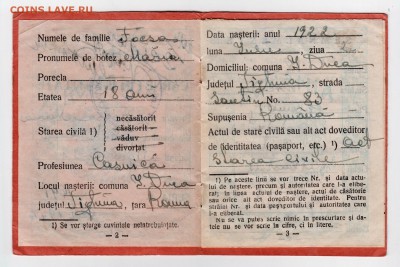 COINSS-LAVE.RU
Numele de familie
Pronumele de botez, Maria
Porecla
Etatea 18 ani
Starea civilă 1)
necăsătorit
căsătorit
văduv
divorțat
Profesiunea Casnică
Locul nașterii: comuna I. Duca
județul Tighina, țara Româna
1) Se vor șterge cuvintele netrebuitoare.
— 2 —
Data nașterii: anul 1922
luna Iulie, ziua
Domiciliul: comuna I. Duca
Județul Tighina, strada
No. 83
Supușenia Română
Actul de stare civilă sau alt act doveditor
de identitatea (pașaport, etc.) 1) act
Starea Civile
1) Pe aceste linii se vor trece Nr. și data actu-
lui de naștere, precum și autoritatea care l-a elibe-
rat; în lipsa actului de naștere, actul de căsătorie
sau orice alt act doveditor de identitate. Pentru
străini Nr. și data pașaportului și autoritatea care
l-a eliberat.
Nu se va putea scrie nimic în prescurtare și da-
tele nu se vor scrie în cifre, ci în litere.
— 3 —